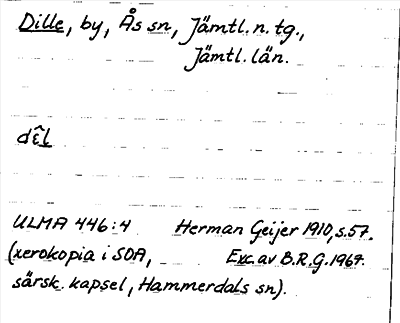 Dille, by, Ås sn, Jämtl. n. tg.,
Jämtl. län.
dɛ̂l
ULMA 446:4 Herman Geijer 1910, s. 57.
(xerokopia i SOA, Exc. av B.R.G. 1967.
särsk. kapsel, Hammerdals sn).